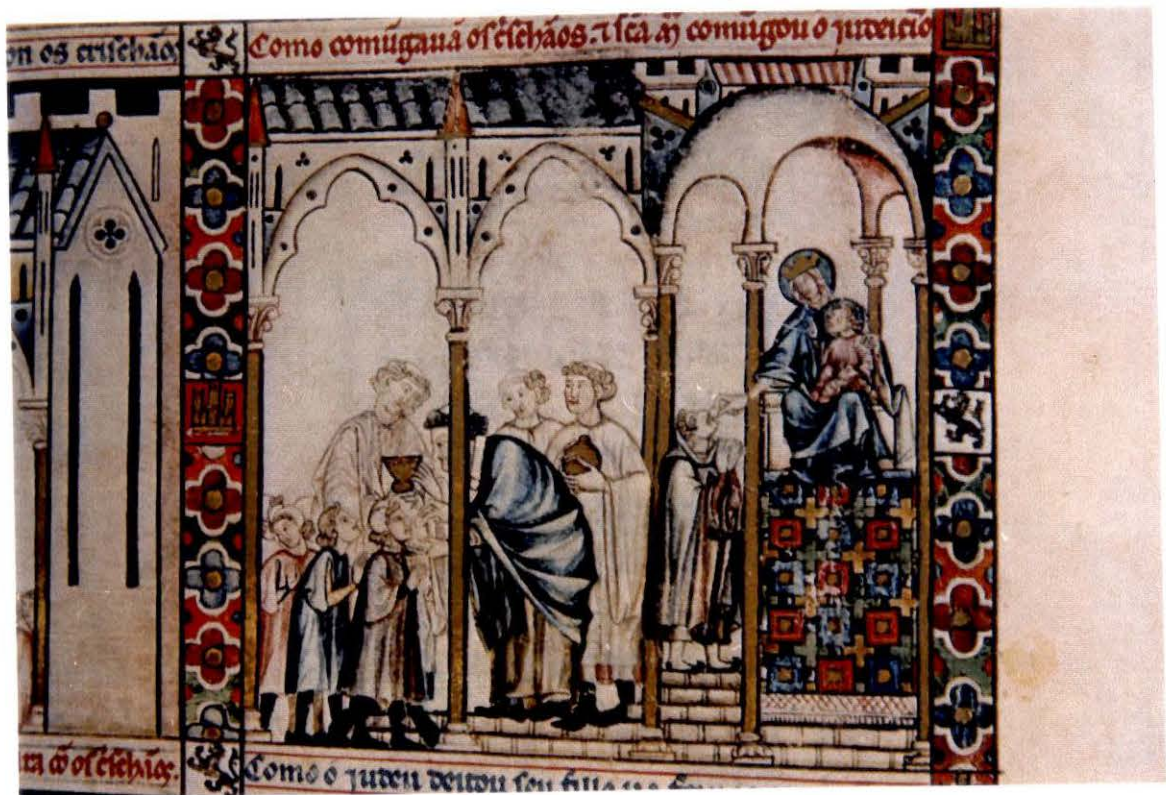 on os crischãos
Como comũgauã os cr̃schãos. ⁊ scã m̃ comũgou o judeucĩo
ra cõ os cr̃schãos.
Como o judeu deitou seu fillo no